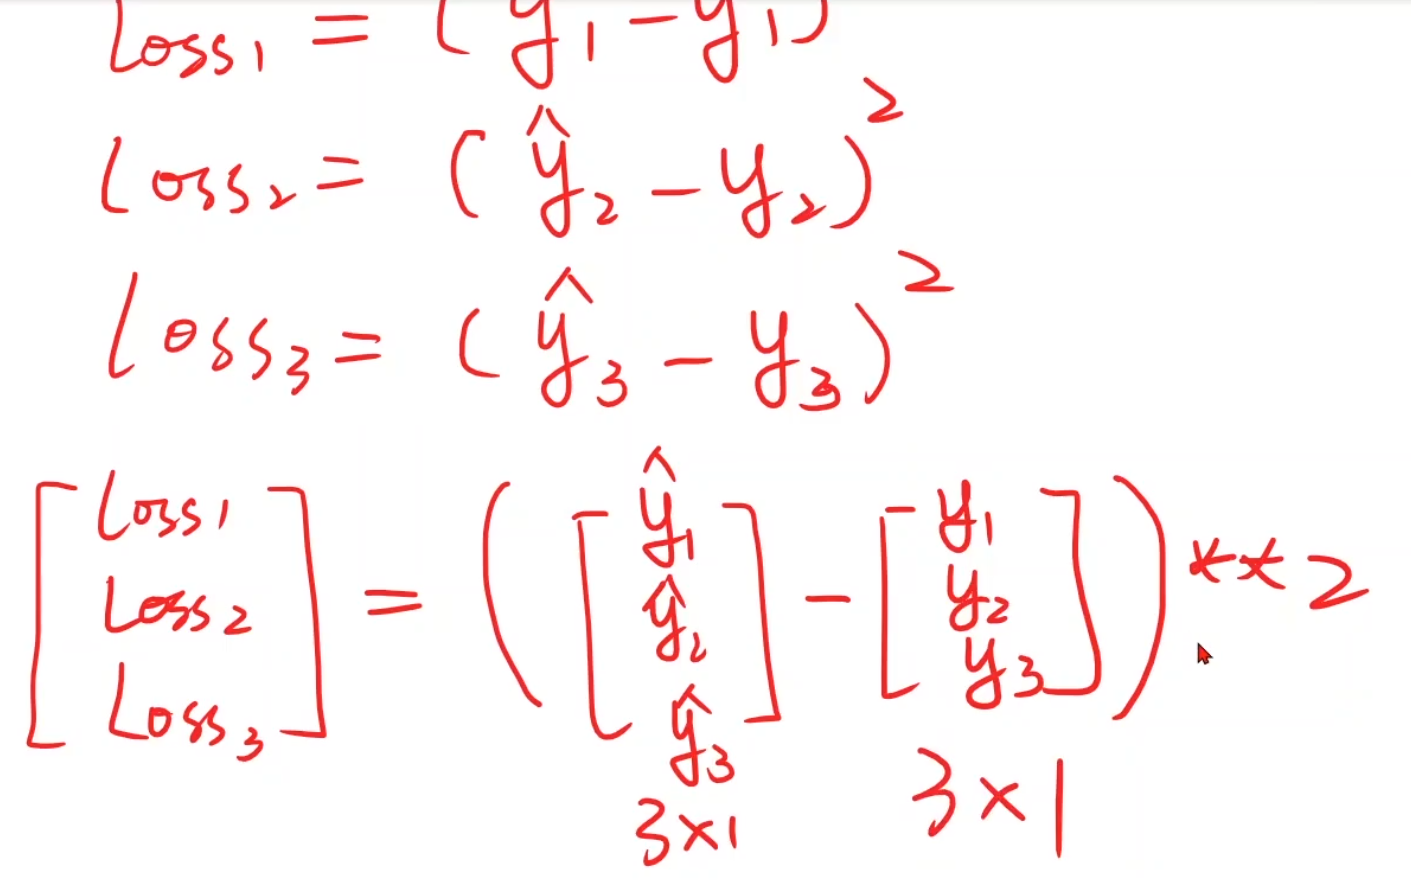 Loss₁ = (ŷ₁ - y₁)
Loss₂ = (ŷ₂ - y₂)²
Loss₃ = (ŷ₃ - y₃)²
[Loss₁ Loss₂ Loss₃] = ([ŷ₁ ŷ₂ ŷ₃] - [y₁ y₂ y₃]) ** 2
3×1 3×1